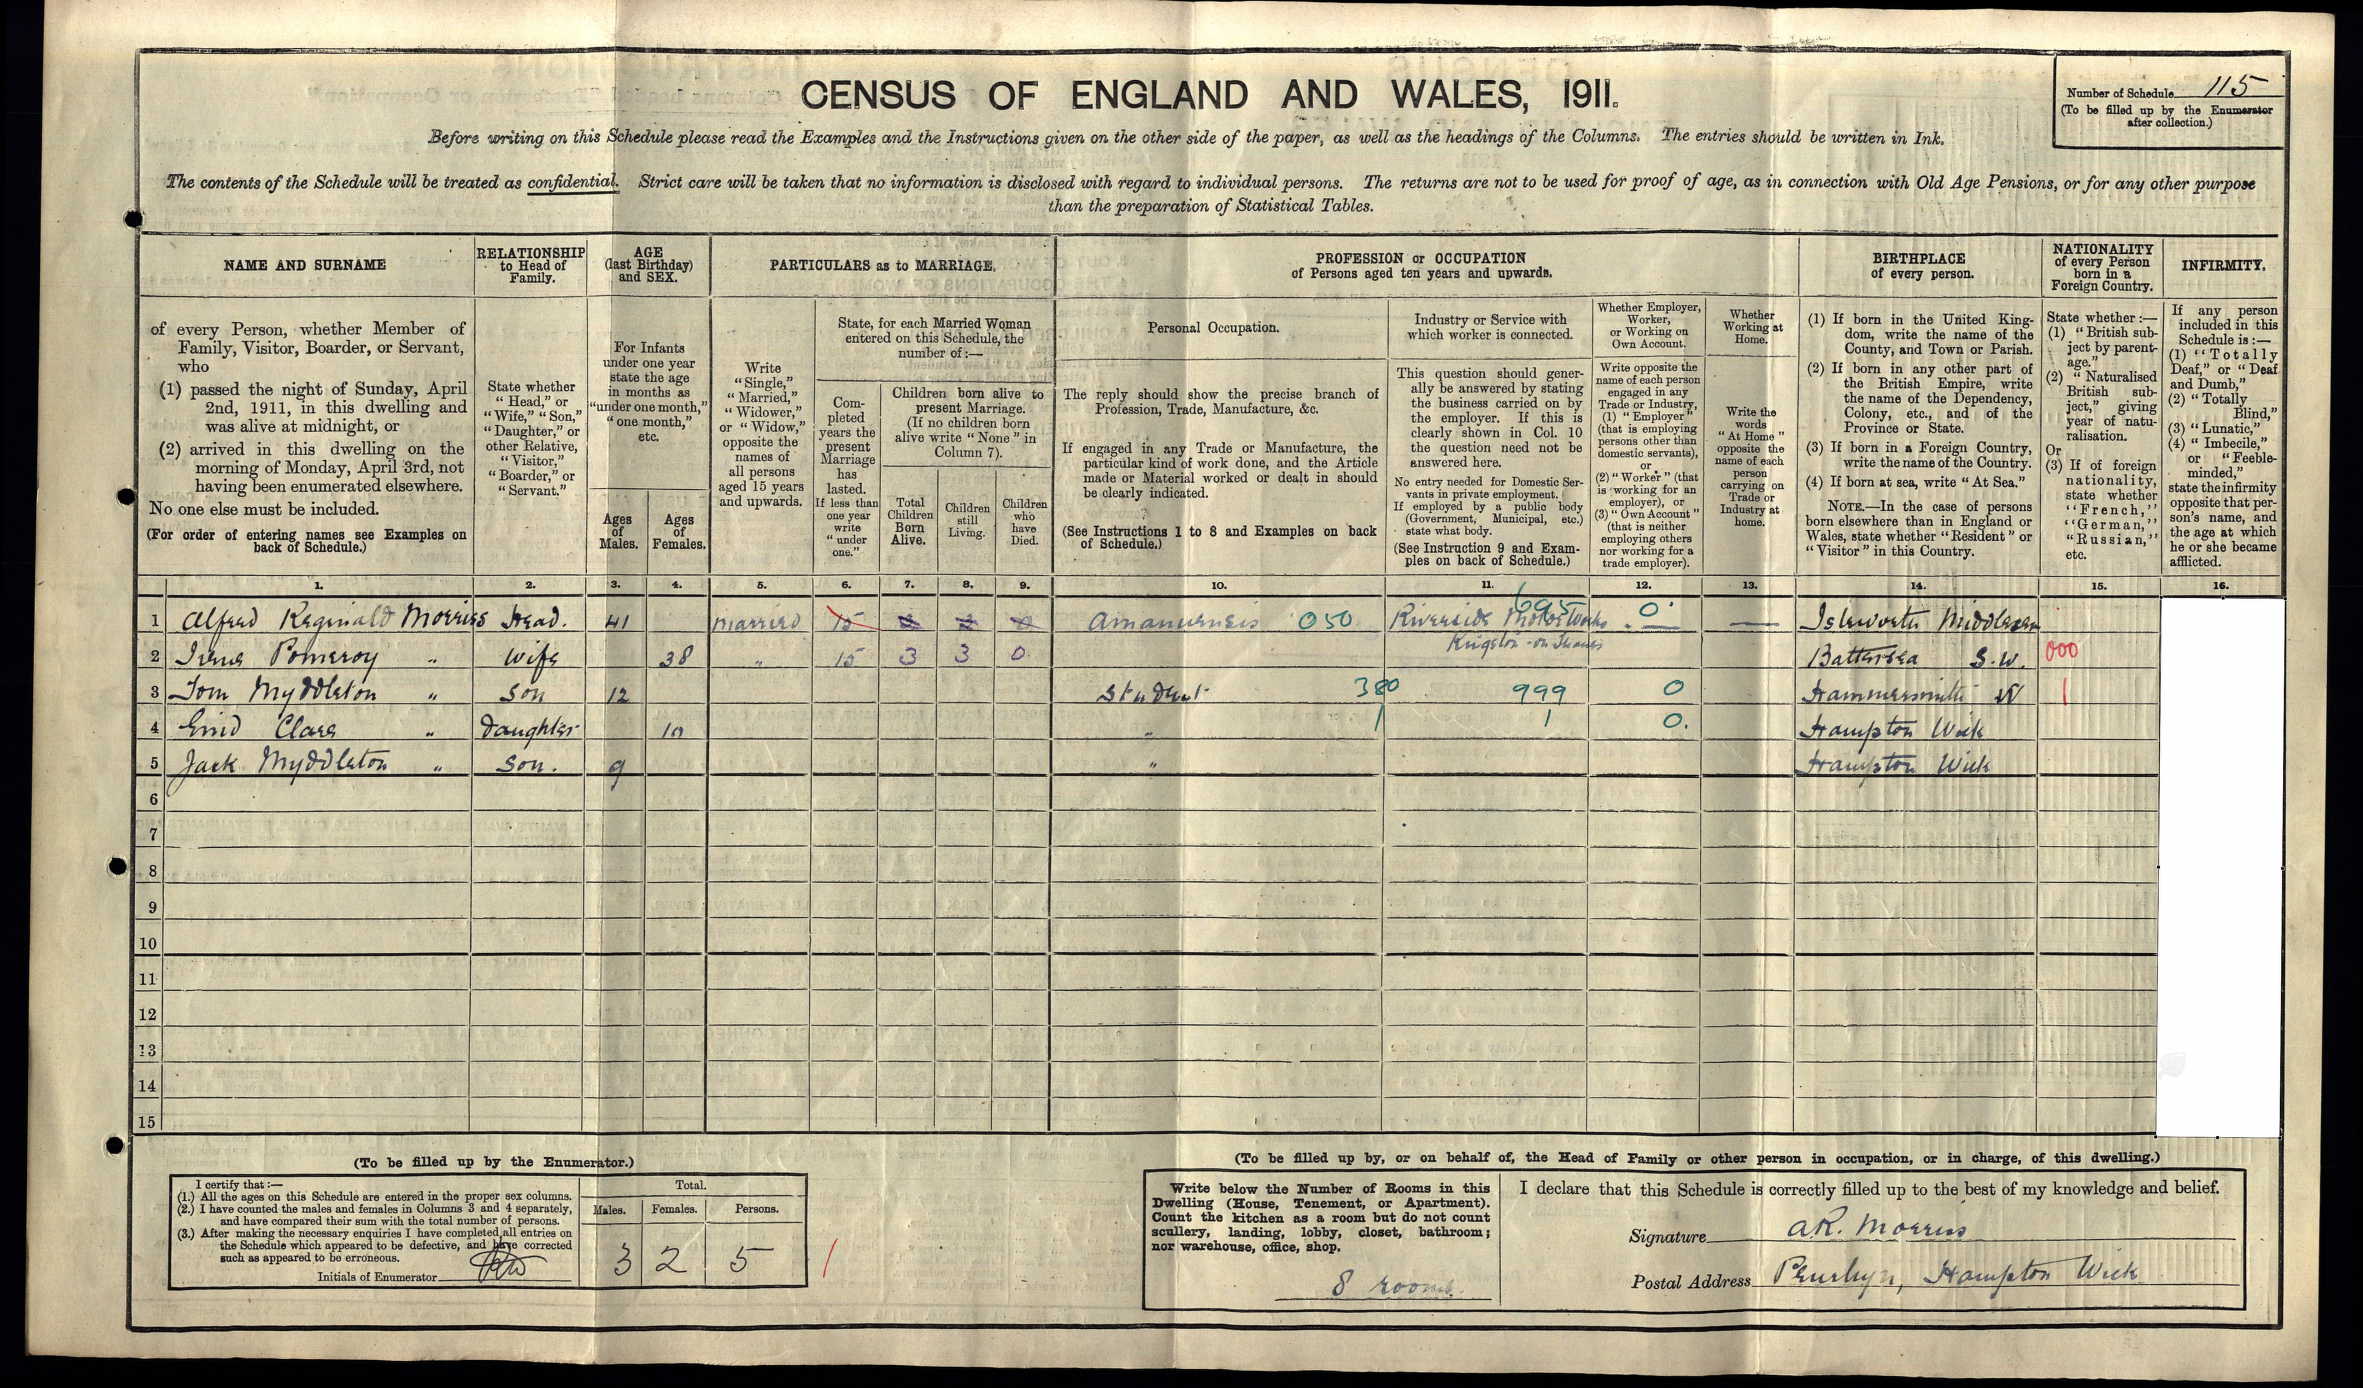 CENSUS OF ENGLAND AND WALES, 1911.
Number of Schedule 115
(To be filled up by the Enumerator
after collection.)
Before writing on this Schedule please read the Examples and the Instructions given on the other side of the paper, as well as the headings of the Columns. The entries should be written in Ink.
The contents of the Schedule will be treated as confidential. Strict care will be taken that no information is disclosed with regard to individual persons. The returns are not to be used for proof of age, as in connection with Old Age Pensions, or for any other purpose
than the preparation of Statistical Tables.
NAME AND SURNAME
of every Person, whether Member of
Family, Visitor, Boarder, or Servant,
who
(1) passed the night of Sunday, April
2nd, 1911, in this dwelling and
was alive at midnight, or
(2) arrived in this dwelling on the
morning of Monday, April 3rd, not
having been enumerated elsewhere.
No one else must be included.
(For order of entering names see Examples on
back of Schedule.)
RELATIONSHIP
to Head of
Family.
State whether
"Head," or
"Wife," "Son,"
"Daughter," or
other Relative,
"Visitor,"
"Boarder," or
"Servant."
AGE
(last Birthday)
and SEX.
For Infants
under one year
state the age
in months as
"under one month,"
"one month,"
etc.
Ages
of
Males.
Ages
of
Females.
PARTICULARS as to MARRIAGE.
Write
"Single,"
"Married,"
"Widower,"
or "Widow,"
opposite the
names of
all persons
aged 15 years
and upwards.
State, for each Married Woman
entered on this Schedule, the
number of:—
Com-
pleted
years the
present
Marriage
has
lasted.
If less than
one year
write
"under
one."
Children born alive to
present Marriage.
(If no children born
alive write "None" in
Column 7).
Total
Children
Born
Alive.
Children
still
Living.
Children
who
have
Died.
PROFESSION or OCCUPATION
of Persons aged ten years and upwards.
Personal Occupation.
The reply should show the precise branch of
Profession, Trade, Manufacture, &c.
If engaged in any Trade or Manufacture, the
particular kind of work done, and the Article
made or Material worked or dealt in should
be clearly indicated.
(See Instructions 1 to 8 and Examples on back
of Schedule.)
Industry or Service with
which worker is connected.
This question should gener-
ally be answered by stating
the business carried on by
the employer. If this is
clearly shown in Col. 10
the question need not be
answered here.
No entry needed for Domestic Ser-
vants in private employment.
If employed by a public body
(Government, Municipal, etc.)
state what body.
(See Instruction 9 and Exam-
ples on back of Schedule.)
Whether Employer,
Worker,
or Working on
Own Account.
Write opposite the
name of each person
engaged in any
Trade or Industry,
(1) "Employer"
(that is employing
persons other than
domestic servants),
or
(2) "Worker" (that
is working for an
employer), or
(3) "Own Account"
(that is neither
employing others
nor working for a
trade employer).
Whether
Working at
Home.
Write the
words
"At Home"
opposite the
name of each
person
carrying on
Trade or
Industry at
home.
BIRTHPLACE
of every person.
(1) If born in the United King-
dom, write the name of the
County, and Town or Parish.
(2) If born in any other part of
the British Empire, write
the name of the Dependency,
Colony, etc., and of the
Province or State.
(3) If born in a Foreign Country,
write the name of the Country.
(4) If born at sea, write "At Sea."
NOTE.—In the case of persons
born elsewhere than in England or
Wales, state whether "Resident" or
"Visitor" in this Country.
NATIONALITY
of every Person
born in a
Foreign Country.
State whether:—
(1) "British sub-
ject by parent-
age."
(2) "Naturalised
British sub-
ject," giving
year of natu-
ralisation.
Or
(3) If of foreign
nationality,
state whether
"French,"
"German,"
"Russian,"
etc.
INFIRMITY.
If any person
included in this
Schedule is:—
(1) "Totally
Deaf," or "Deaf
and Dumb,"
(2) "Totally
Blind,"
(3) "Lunatic,"
(4) "Imbecile,"
or "Feeble-
minded,"
state the infirmity
opposite that per-
son's name, and
the age at which
he or she became
afflicted.
1. 2. 3. 4. 5. 6. 7. 8. 9. 10. 11. 12. 13. 14. 15. 16.
1 Alfred Reginald Morriss Head. 41 married 15 Amanuensis 050 Riverside Motor Works 695 0 — Isleworth Middlesex
Kingston-on-Thames
2 Irene Pomeroy " Wife 38 " 15 3 3 0 Battersea S.W. 000
3 Tom Myddleton " Son 12 Student 380 999 0 Hammersmith W 1
4 Enid Clara " Daughter 10 " 1 1 0. Hampton Wick
5 Jack Myddleton " Son. 9 " Hampton Wick
6
7
8
9
10
11
12
13
14
15
(To be filled up by the Enumerator.)
I certify that:—
(1.) All the ages on this Schedule are entered in the proper sex columns.
(2.) I have counted the males and females in Columns 3 and 4 separately,
and have compared their sum with the total number of persons.
(3.) After making the necessary enquiries I have completed all entries on
the Schedule which appeared to be defective, and have corrected
such as appeared to be erroneous.
Initials of Enumerator
Total.
Males. Females. Persons.
3 2 5 1
(To be filled up by, or on behalf of, the Head of Family or other person in occupation, or in charge, of this dwelling.)
Write below the Number of Rooms in this
Dwelling (House, Tenement, or Apartment).
Count the kitchen as a room but do not count
scullery, landing, lobby, closet, bathroom;
nor warehouse, office, shop.
8 rooms.
I declare that this Schedule is correctly filled up to the best of my knowledge and belief.
Signature AR. Morriss
Postal Address Penrhyn, Hampton Wick